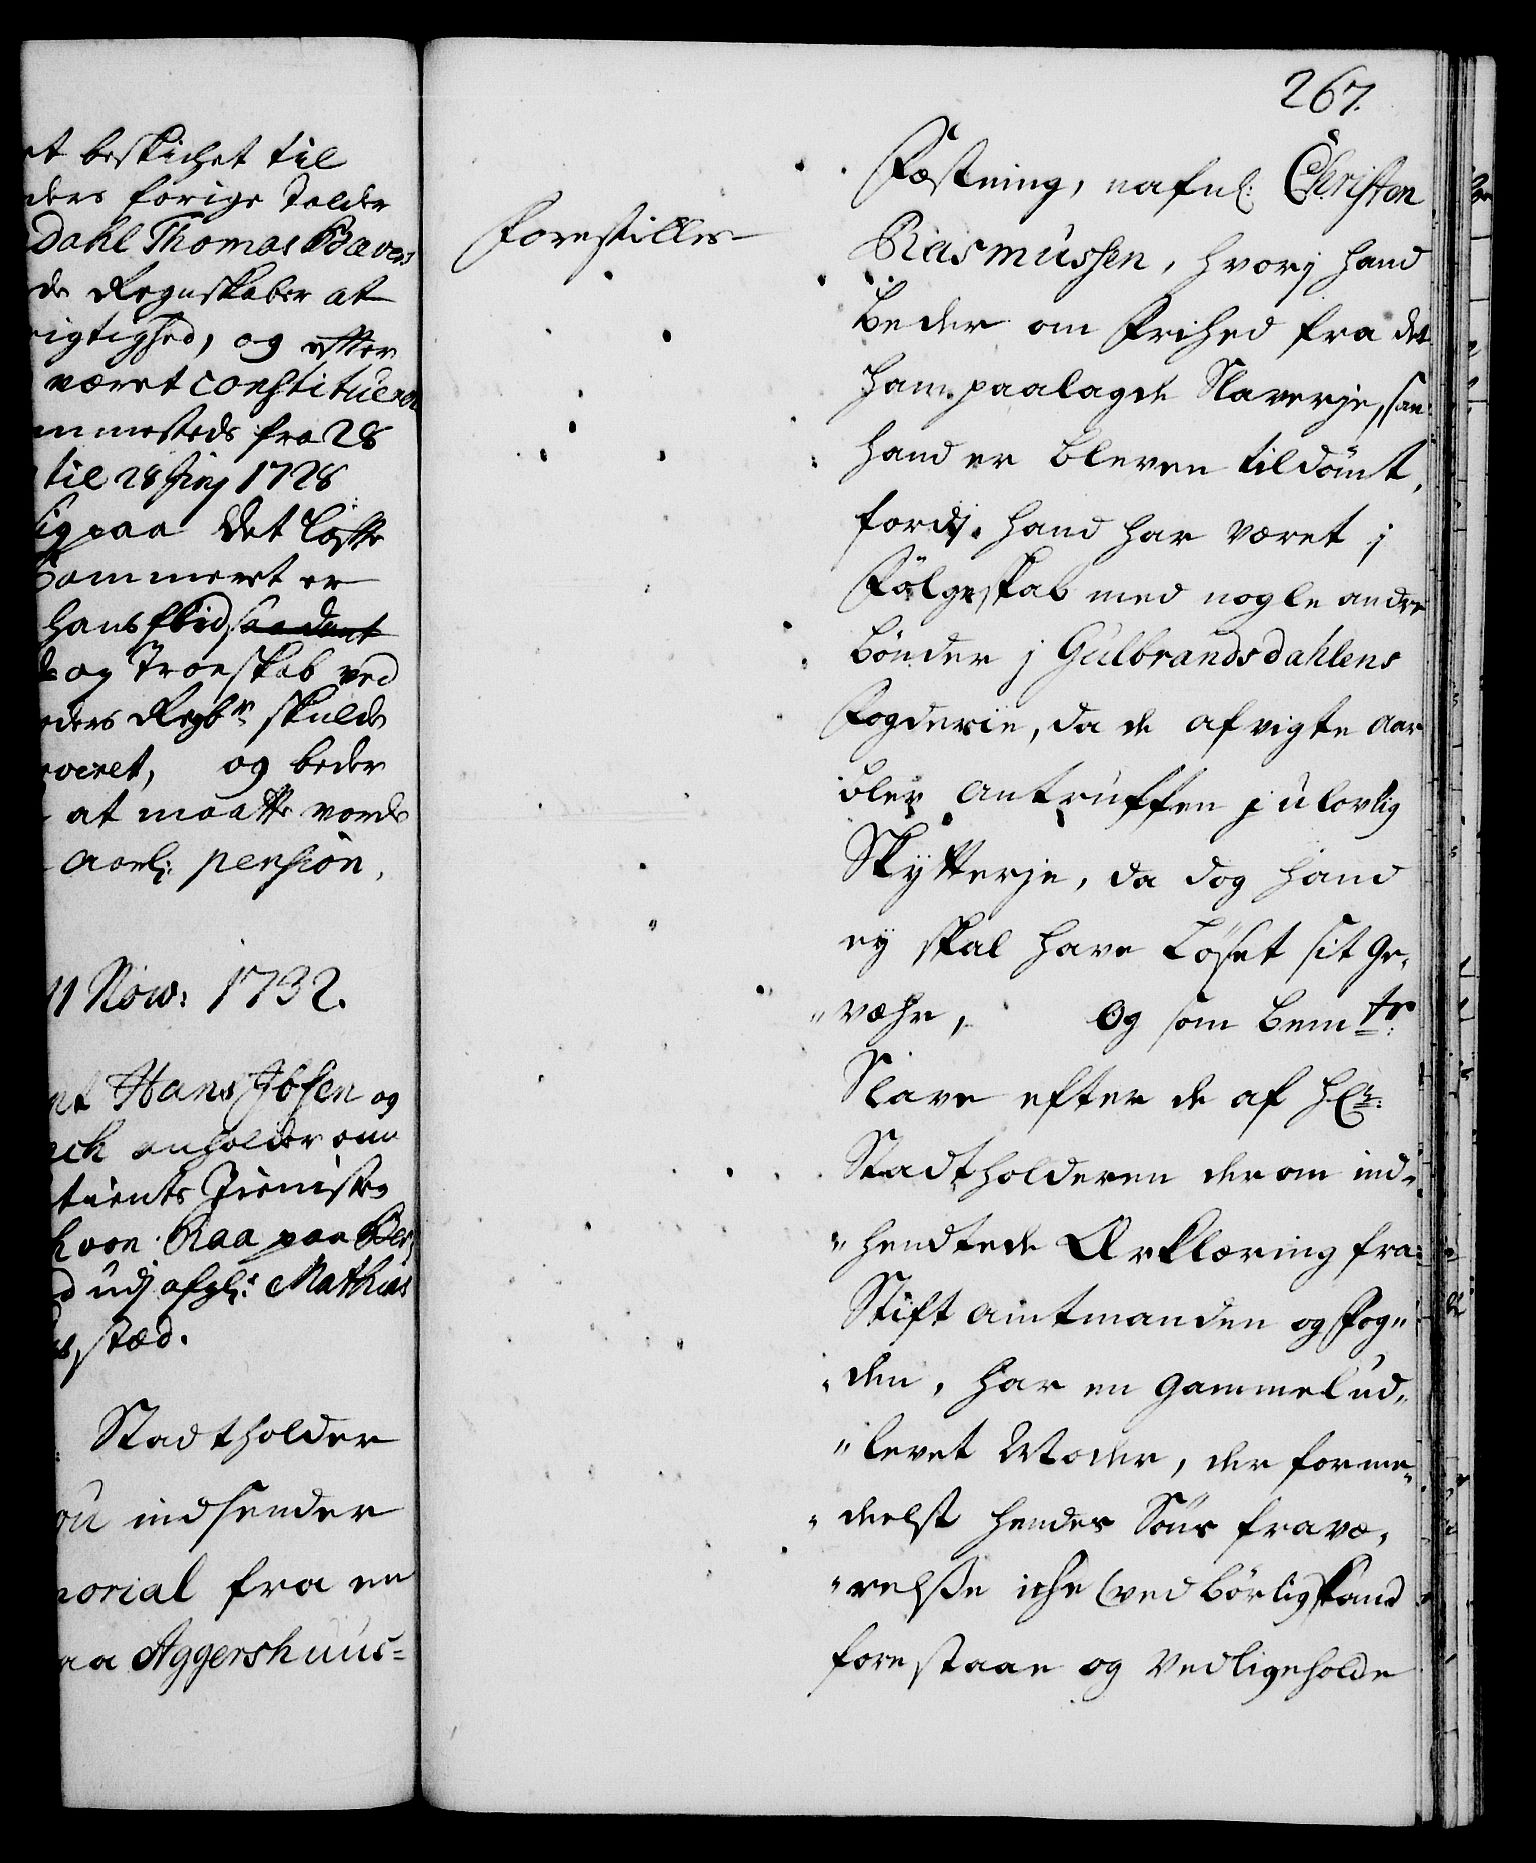 et beskichet til
ders forige Tolder
Dahl Thomas Bæver
de Regnskaber at
rigtighed, og efter
været constitueret
mmesteds fra 28
til 28 Junj 1728
ig paa det løfte
Cammeret er
hans flid, saadant
de og Troeskab ved
eders Regb:r skulde
været, og beder
at maatte vorde
Aarl: pension,
11 Nov: 1732.
nt Hans Ibsen og
ck anholder om
tients Tieniste
von Raa paa Ber
d udj afgl: Mathias
s, stæd.
Stadtholder
ou indsender
morial fra en
aa Aggershuus=
267.
Forestilles
Fæstning, nafnl: Christen
Rasmussen, hvorj hand
beder om Frihed fra det
ham paalagde Slaverje, som
hand er bleven tildömt,
fordj hand har været j
Fölgeskab med nogle andre
bönder j Gulbrandsdahlens
Fogderie, da de afvigte Aar
blev antruffen j ulovlig
Skytterje, da dog hand
ey skal have Löset sit Ge„
„væhr, Og som bem:te
Slave efter de af H:r
Stadtholderen derom ind„
„hendtede Erklæring fra
Stift amtmanden og Fog„
„den, har en gammel ud„
„levet Moder, der forme„
„delst hendes Söns fravæ„
„relsse iche ved börlig stand
forestaae og Vedligeholde